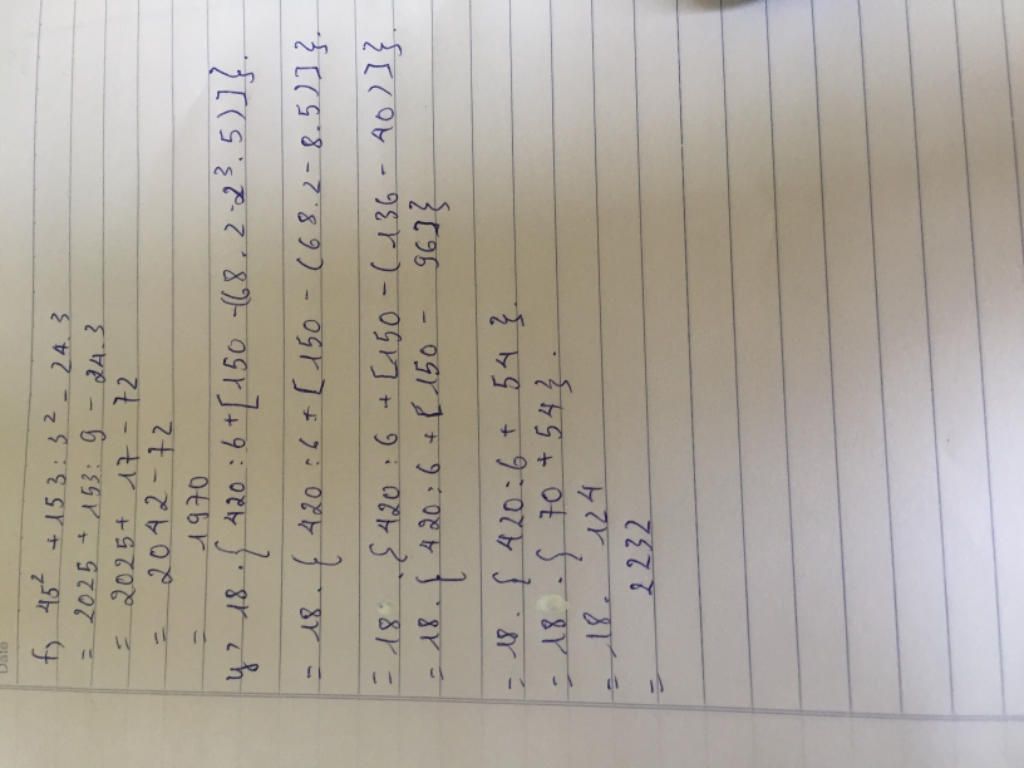 Date
f) 45² + 153 : 3² - 24.3
= 2025 + 153 : 9 - 24.3
= 2025 + 17 - 72
= 2042 - 72
= 1970
y, 18 . { 420 : 6 + [ 150 - (68 . 2 - 2³ . 5 ) ] } .
= 18 . { 420 : 6 + [ 150 - (68 . 2 - 8 . 5 ) ] } .
= 18 . { 420 : 6 + [ 150 - ( 136 - 40 ) ] } .
= 18 . { 420 : 6 + [ 150 - 96 ] }
= 18 . { 420 : 6 + 54 } .
= 18 . { 70 + 54 } .
= 18 . 124
= 2232